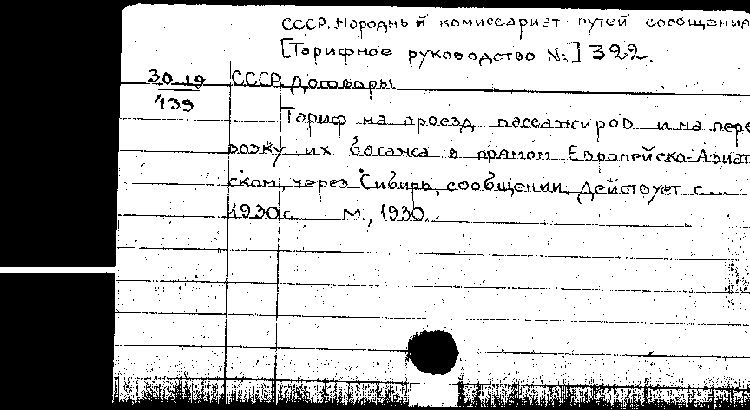 СССР. Народный комиссариат путей сообщения
[Тарифное руководство №] 322.
30-19 СССР. Договоры
439
Тариф на проезд пассажиров и на пере
возку их багажа в прямом Европейско-Азиат
ском, через Сибирь, сообщении. Действует с...
1930 г. М., 1930.